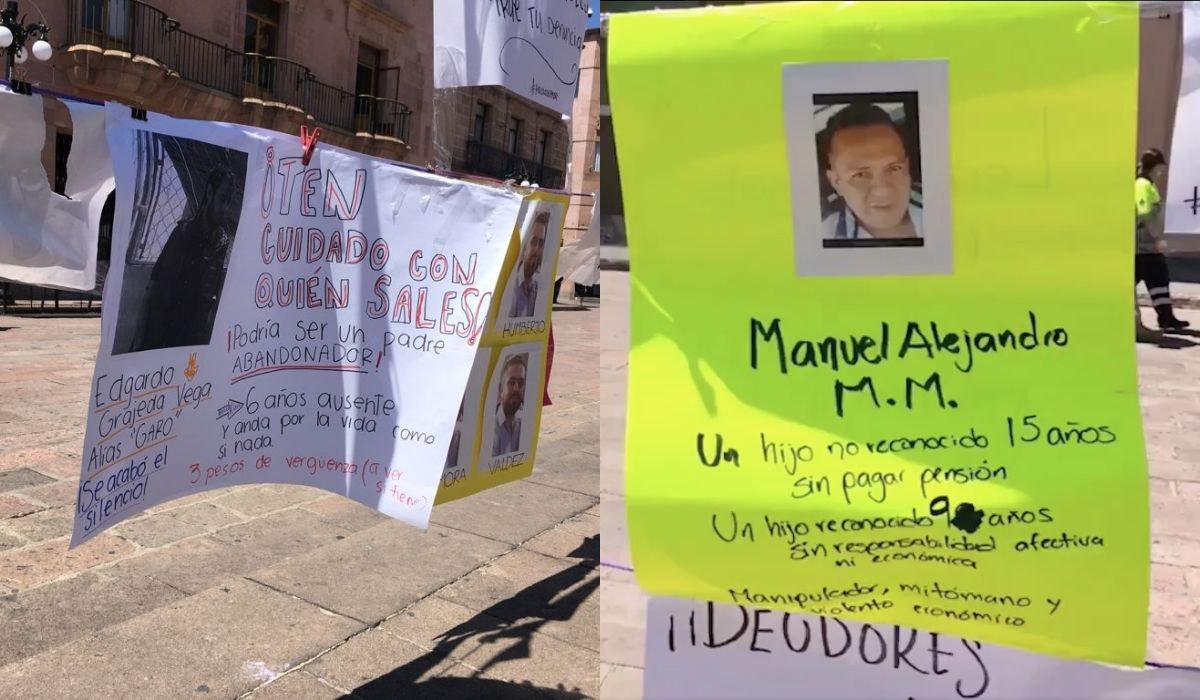 TU DENUNCIA
¡TEN
CUIDADO CON
QUIÉN SALES!
¡Podría ser un padre
ABANDONADOR!
6 años ausente
y anda por la vida como
si nada
3 pesos de vergüenza (a ver
si tiene)
Edgardo
Grajeda Vega
Alias "GARO"
¡Se acabó el
silencio!
HUMBERTO
VALDEZ
Manuel Alejandro
M.M.
Un hijo no reconocido 15 años
sin pagar pensión
Un hijo reconocido 9 años
sin responsabilidad afectiva
ni económica
Manipulador, mitómano y
violento económico
¡¡DEUDORES